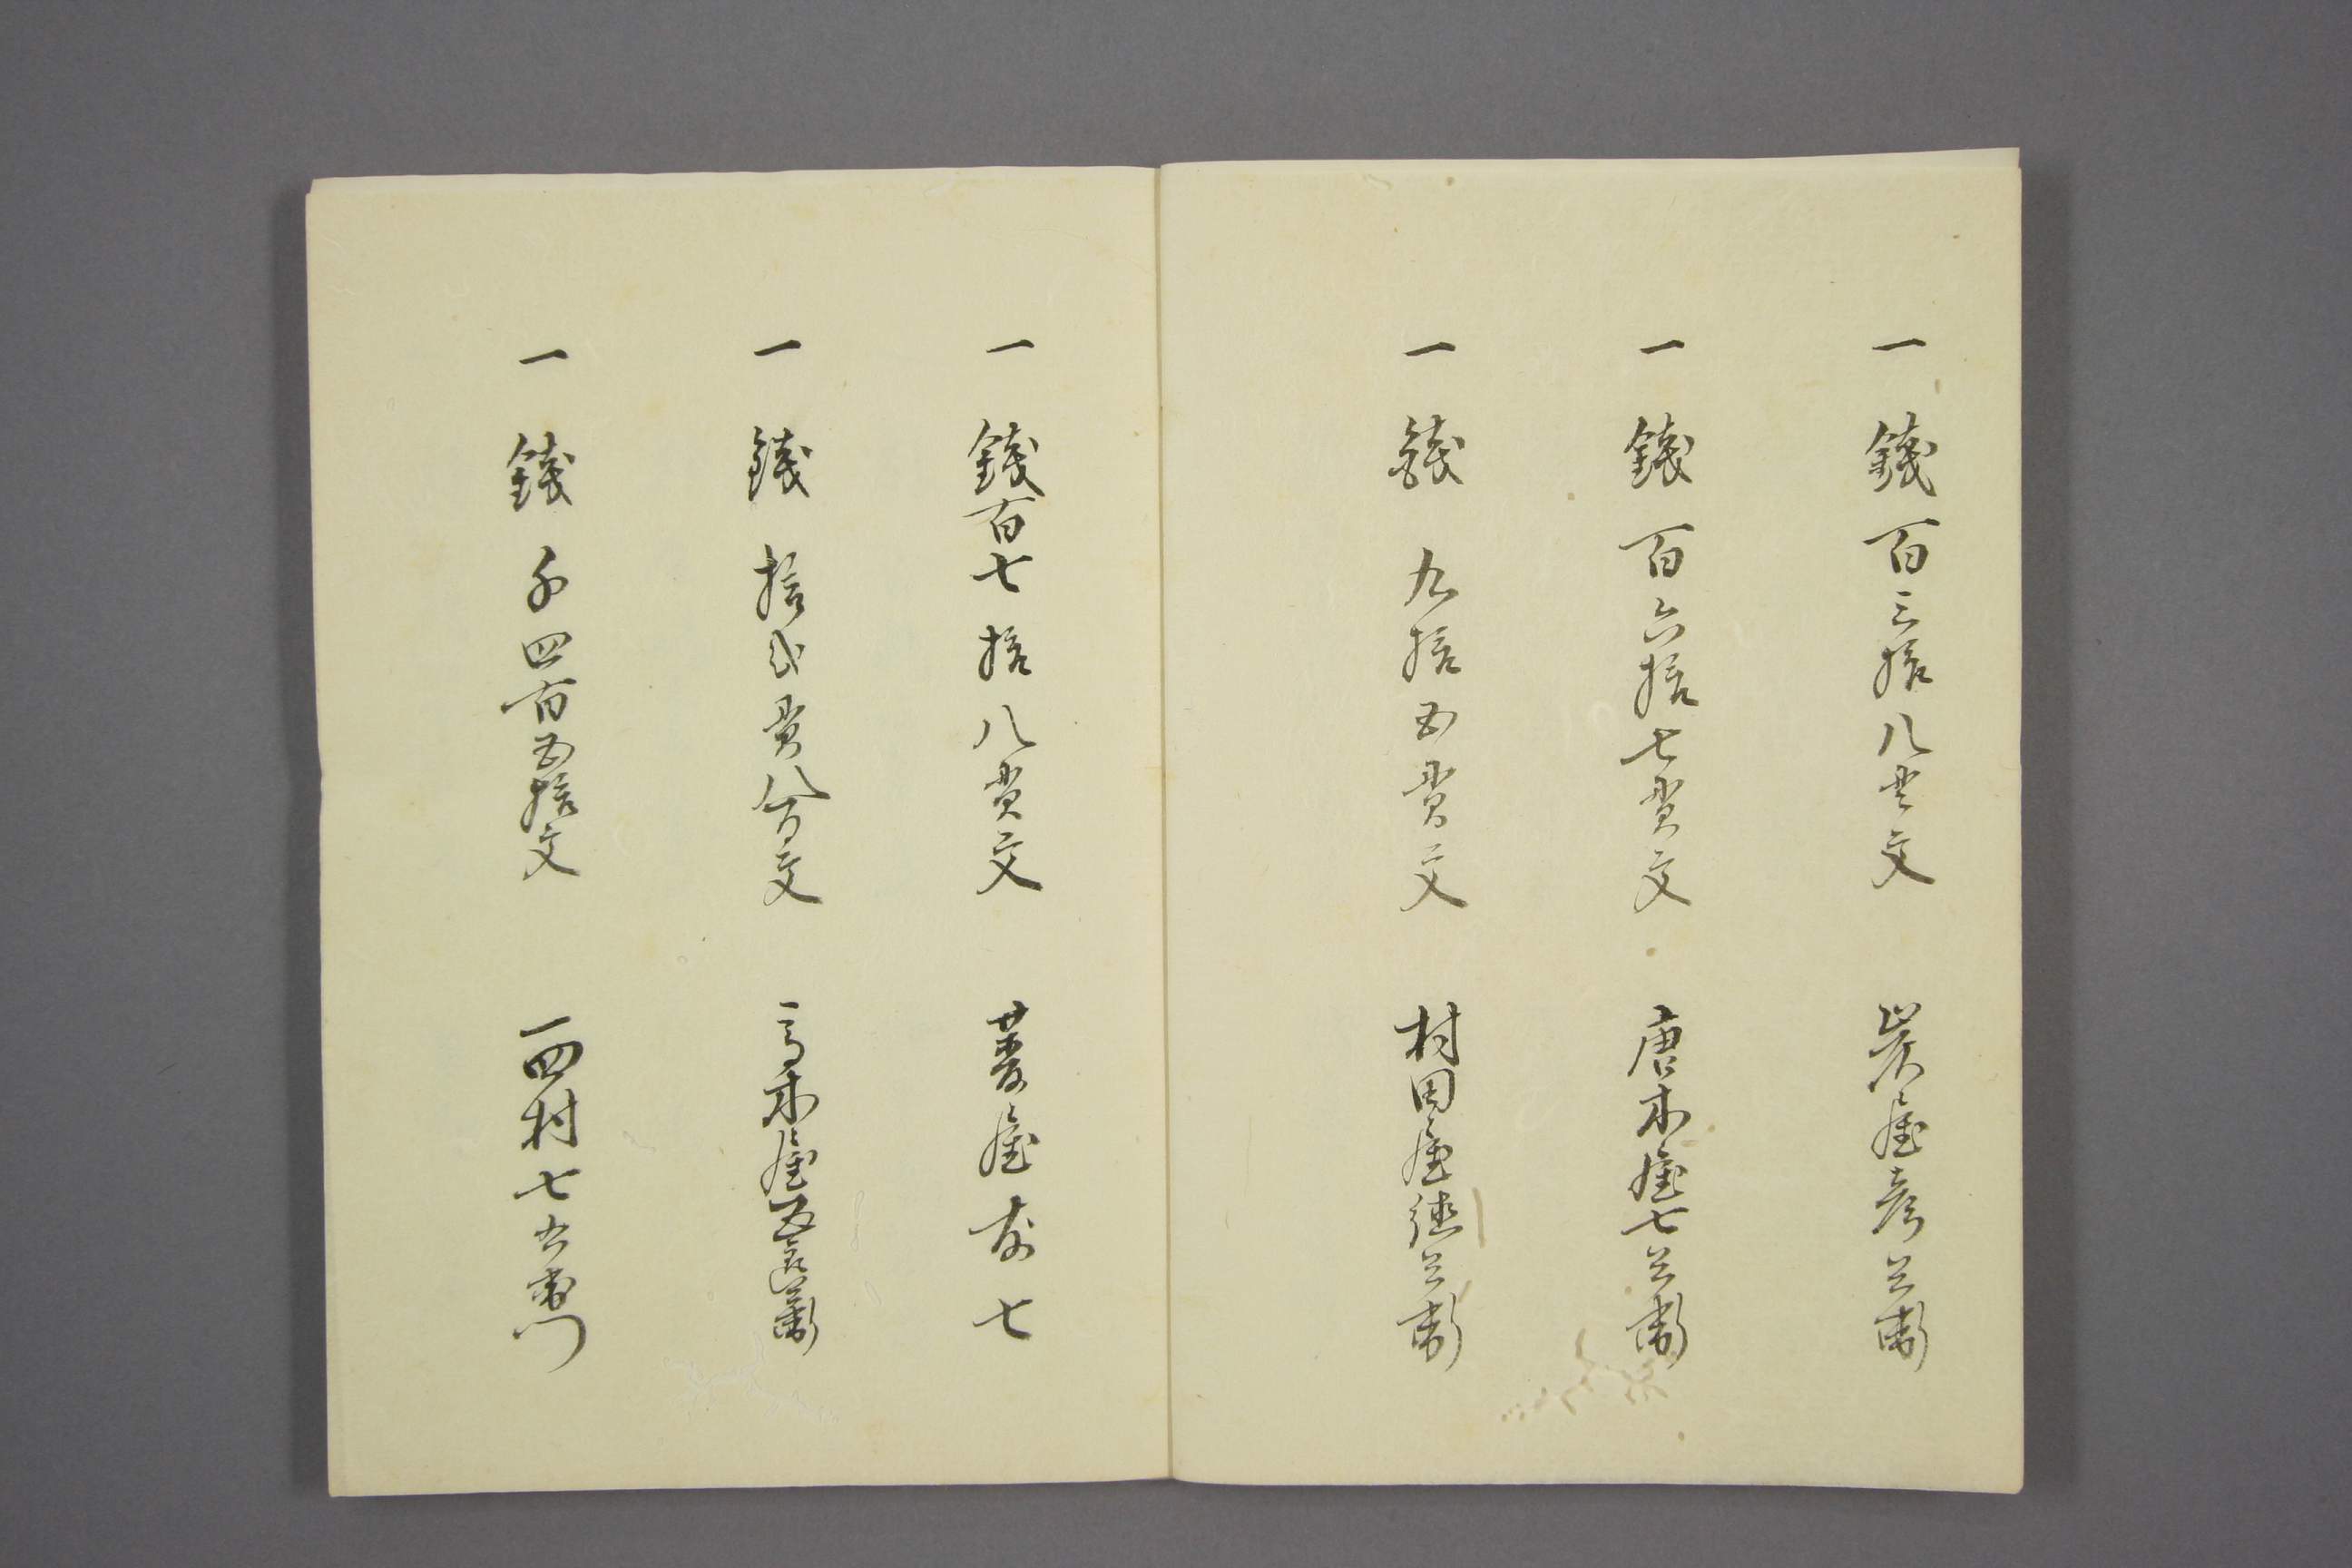 一 錢 百三拾八貫文 炭屋彦兵衛
一 錢 百六拾七貫文 唐木屋七兵衛
一 錢 九拾五貫文 村田屋徳兵衛
一 錢百七拾八貫文 菱屋友七
一 錢 拾弐貫八百文 高木屋五郎兵衛
一 錢 千四百五拾文 西村七右衛門